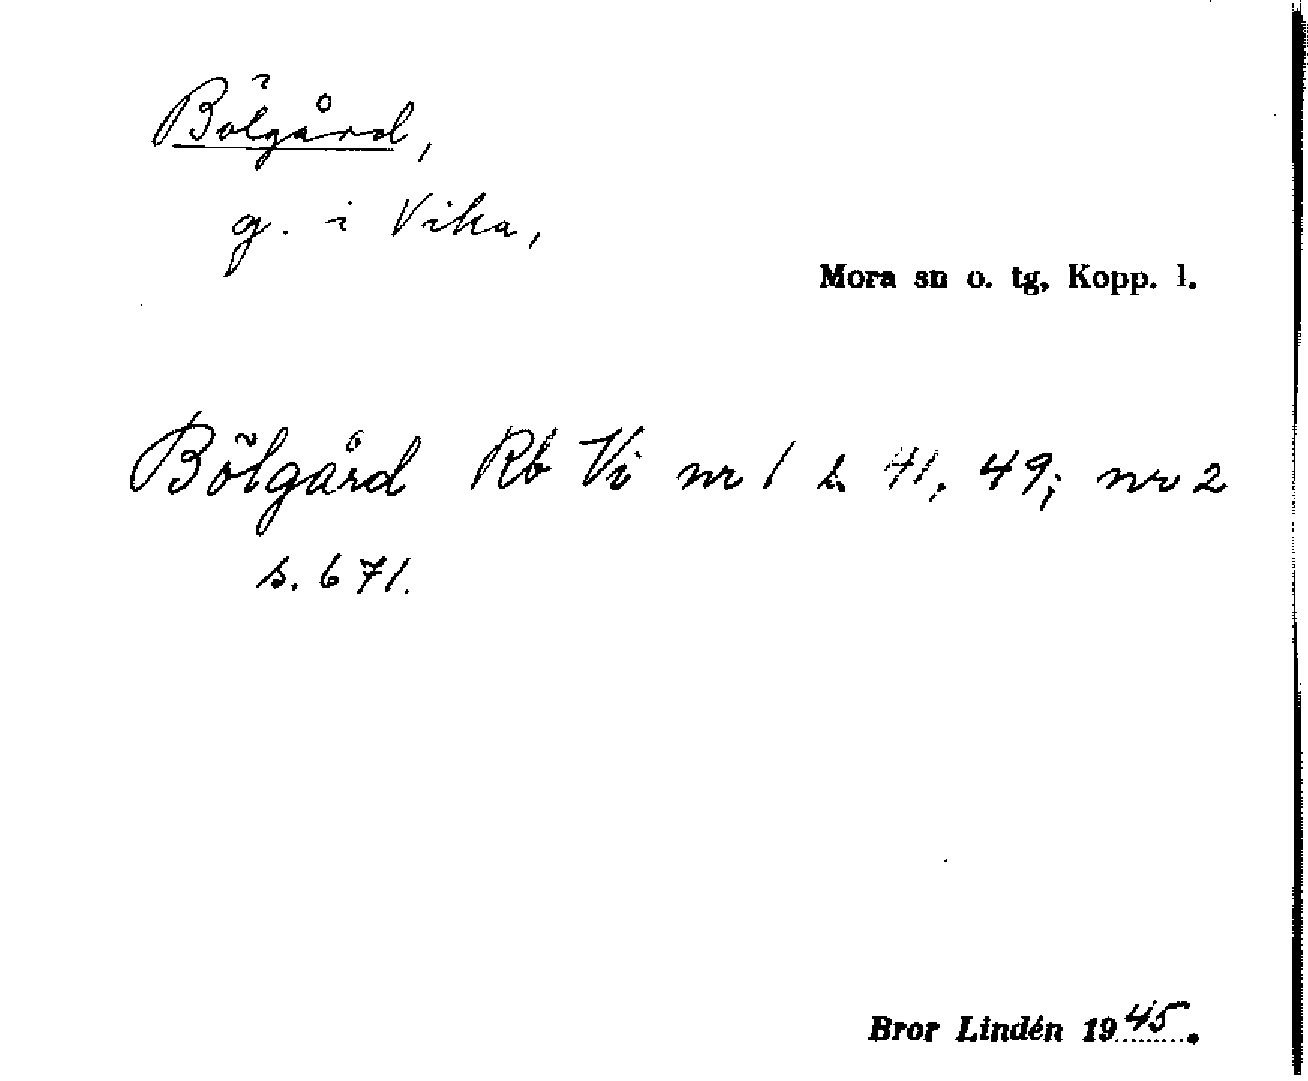 Bölgård,
g. i Vika,
Mora sn o. tg, Kopp. l.
Bölgård Rb Vi nr 1 s. 41, 49; nr 2
s. 671.
Bror Lindén 1945.